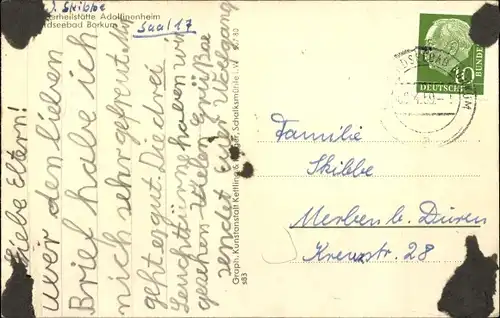 W. Skibbe
Saal 17
erheilstätte Adolfinenheim
dseebad Borkum
Liebe Eltern!
Uver den lieben
Brief habe ich
mich sehr gefreut. Mir
geht es gut. Die drei
Leuchttürm haben wir
gesehen. Vielen Grüße
sendet Euer Wolfgang
Graph. Kunstanstalt Kettling & Krüger, Schalksmühle i. W.
583
DEUTSCHE BUNDES
10
Familie
Skibbe
Merken b. Düren
Kreuzstr. 28